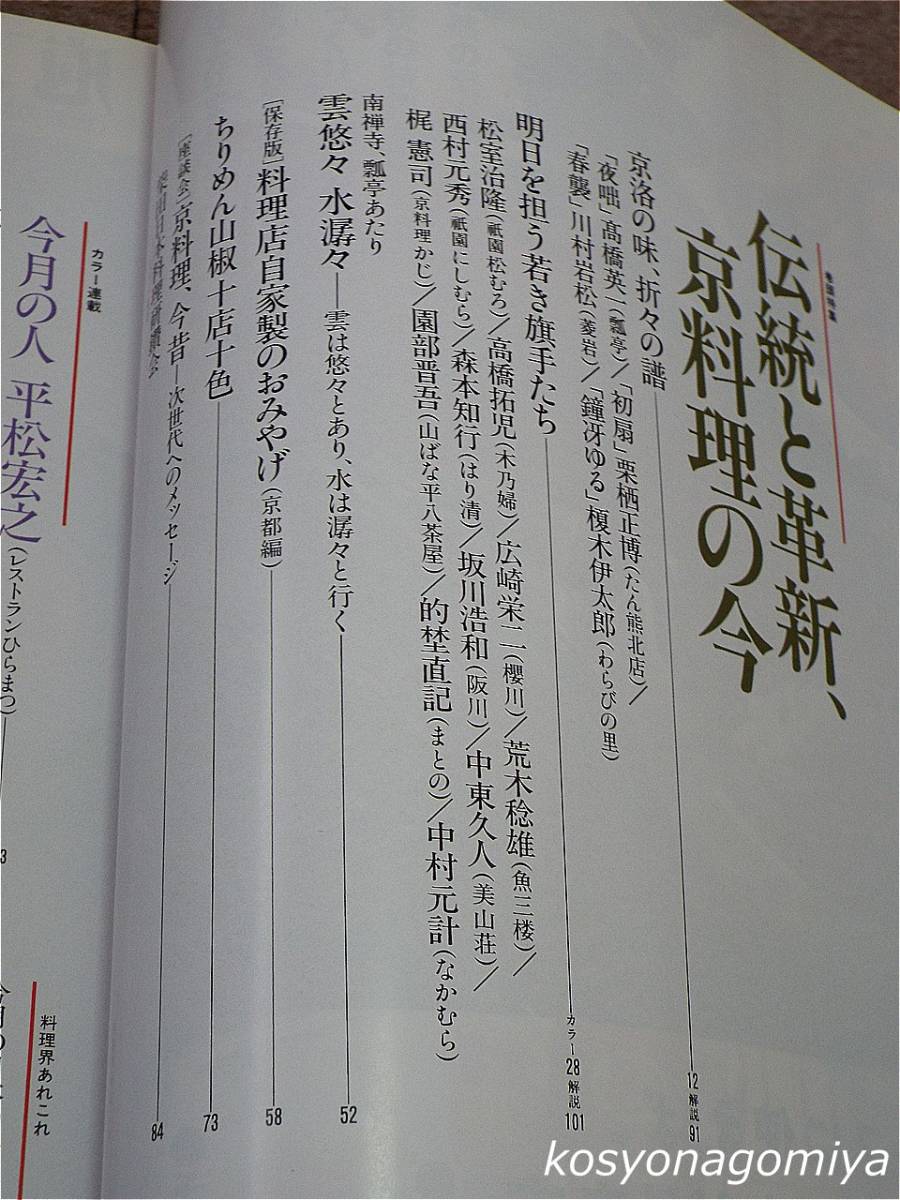 巻頭特集
伝統と革新、
京料理の今
京洛の味、折々の譜 12 解説 91
「夜咄」髙橋英一(瓢亭)/「初扇」栗栖正博(たん熊北店)/
「春襲」川村岩松(菱岩)/「鐘冴ゆる」榎木伊太郎(わらびの里)
明日を担う若き旗手たち カラー 28 解説 101
松室治隆(祇園松むろ)/高橋拓児(木乃婦)/広崎栄二(櫻川)/荒木稔雄(魚三楼)/
西村元秀(祇園にしむら)/森本知行(はり清)/坂川浩和(阪川)/中東久人(美山荘)/
梶 憲司(京料理かじ)/園部晋吾(山ばな平八茶屋)/的埜直記(まとの)/中村元計(なかむら)
南禅寺、瓢亭あたり
雲悠々 水潺々—雲は悠々とあり、水は潺々と行く 52
[保存版]料理店自家製のおみやげ(京都編) 58
ちりめん山椒十店十色 73
[座談会]京料理、今昔—次世代へのメッセージ 84
カラー連載
今月の人 平松宏之(レストランひらまつ) 3
料理界あれこれ
kosyonagomiya